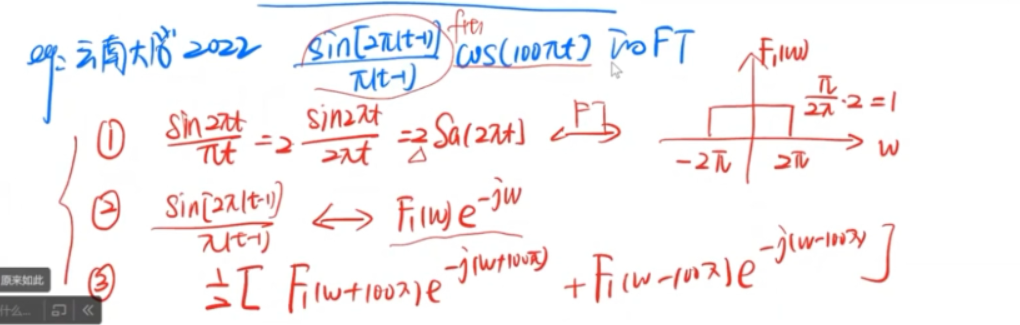 eg: 云南大学 2022 sin[2π(t-1)]/π(t-1) f(t) cos(100πt) 求 FT
① sin2πt/πt = 2 sin2πt/2πt = 2 Sa(2πt) ⟷ FT F₁(w) π/2π·2=1 -2π 2π w
② sin[2π(t-1)]/π(t-1) ⟷ F₁(w)e^{-jw}
③ 1/2 [ F₁(w+100π)e^{-j(w+100π)} + F₁(w-100π)e^{-j(w-100π)} ]
原来如此
什么...